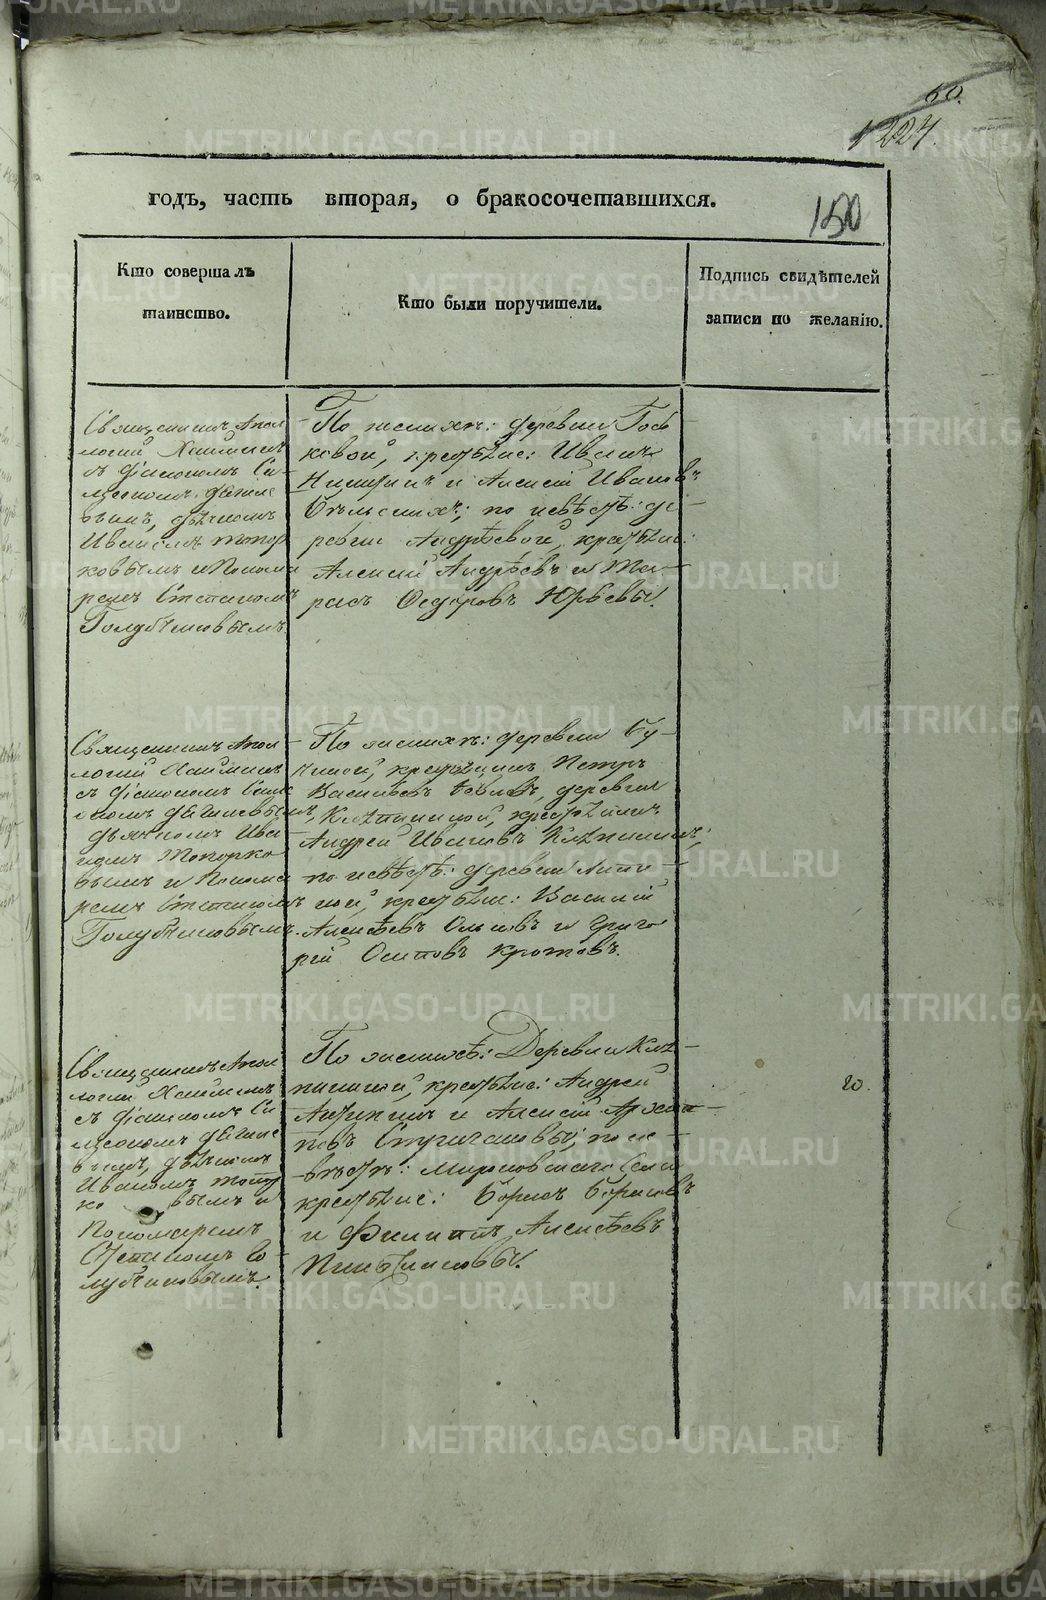 60.
1224.
годъ, часть вторая, о бракосочетавшихся.
150
Кто совершалъ
таинство.
Кто были поручители.
Подпись свидѣтелей
записи по желанію.
Священникъ Апол
логій
съ діакономъ Си-
меономъ
вымъ, дьячкомъ
Иваномъ Топор
ковымъ и Понома
ремъ Степаномъ
Голубчиковымъ.
По женихѣ: деревни
ковой, крестьяне: Иванъ
Никитинъ и Алексій Ивановъ
по невѣстѣ: де-
ревни Андрѣевой, крестьяне:
Алексій Андрѣевъ и Та-
расъ Ѳедоровъ Юрьевы.
Священникъ Апол-
логій
съ діакономъ Симе
ономъ
дьячкомъ Ива
номъ Топорко
вымъ и Понома
ремъ Степаномъ
Голубчиковымъ.
По женихѣ: деревни Бу-
крестьянинъ Петръ
Васильевъ деревни
Клѣпининой, крестьянинъ
Андрей Ивановъ Клѣпининъ;
по невѣстѣ: деревни
ной, крестьяне: Василій
Алексѣевъ и Григо
рій Осиповъ Кротовъ.
Священникъ Апол
логій
съ діакономъ Си
меономъ
вымъ, дьячкомъ
Иваномъ Топор
ко вымъ и
Пономаремъ
Степаномъ Го-
лубчиковымъ.
По женихѣ: Деревни Клѣ-
пининой, крестьяне: Андрей
и Алексій
по не-
вѣстѣ: Мироновскаго Села
крестьяне: Борисъ Борисовъ
и Филиппъ Алексѣевъ
20.
METRIKI.GASO-URAL.RU